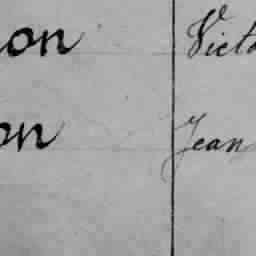 on Victo
on Jean